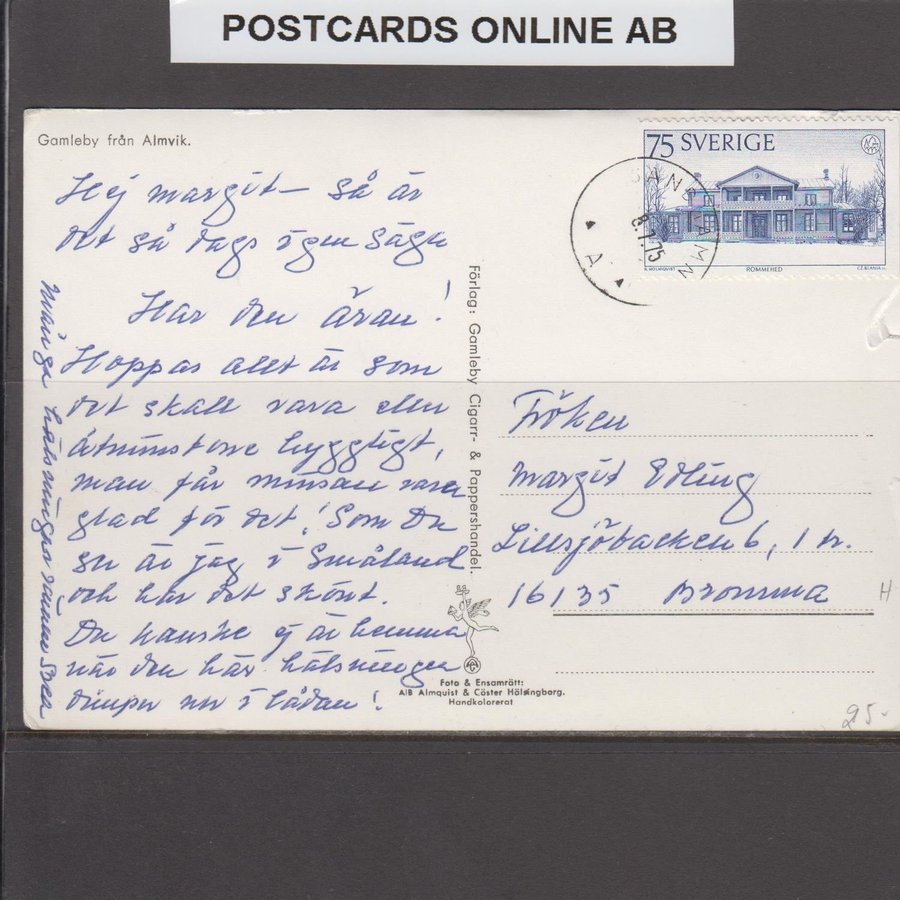 POSTCARDS ONLINE AB
Gamleby från Almvik.
75 SVERIGE
RÖMMEHED
8.7.75
A
Hej Margit – Så är
det så dags igen säga
Har den äran!
Hoppas allt är som
det skall vara eller
åtminstone hyggligt,
man får minsann vara
glad för det! Som Du
ser är jag i Småland
och har det skönt.
Du kanske ej är hemma
när den här hälsningen
dimper ner i lådan!
Många hälsningar
Förlag: Gamleby Cigarr- & Pappershandel.
Fröken
Margit Edling
Lillsjöbacken 6, 1 tr.
16135 Bromma
Foto & Ensamrätt:
A/B Almquist & Cöster Hälsingborg.
Handkolorerat
H
25.-